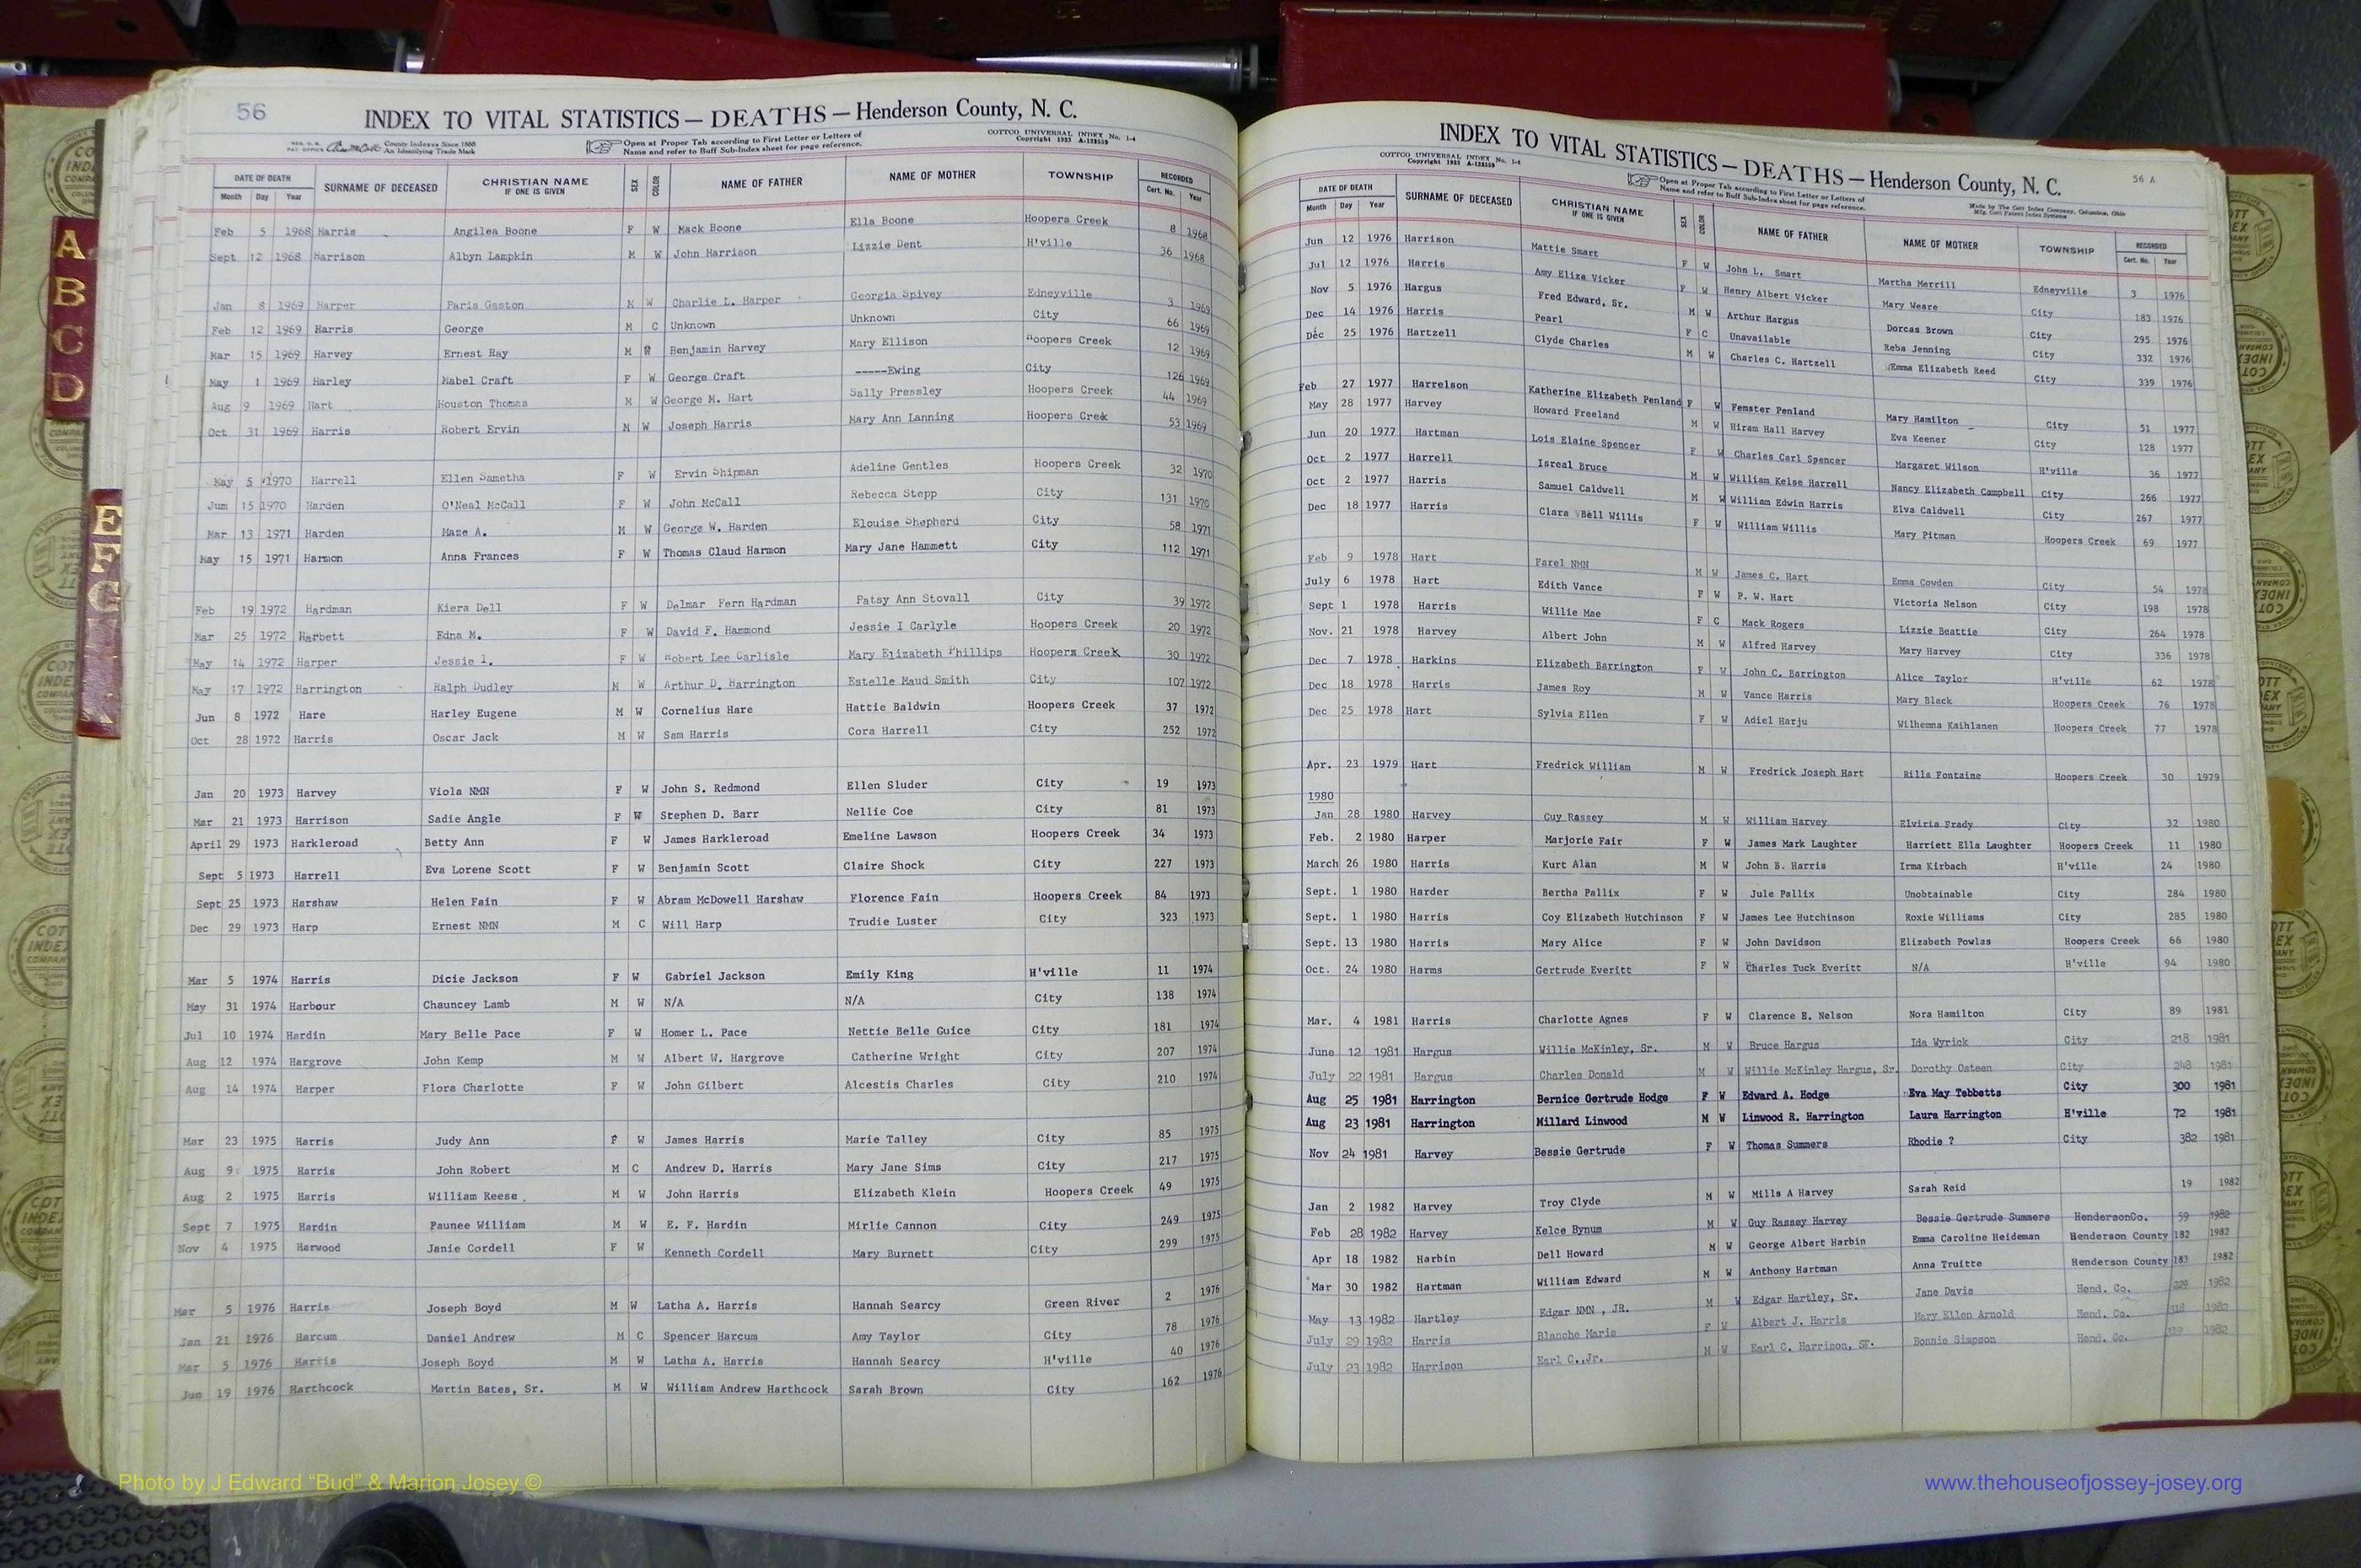 56
INDEX TO VITAL STATISTICS — DEATHS — Henderson County, N. C.
REG. U. S. PAT. OFFICE County Indexes Since 1888 An Identifying Trade Mark
Open at Proper Tab according to First Letter or Letters of Name and refer to Buff Sub-Index sheet for page reference.
COTTCO UNIVERSAL INDEX No. 1-4 Copyright 1933 A-122559
DATE OF DEATH Month Day Year SURNAME OF DECEASED CHRISTIAN NAME IF ONE IS GIVEN SEX COLOR NAME OF FATHER NAME OF MOTHER TOWNSHIP RECORDED Cert. No. Year
Feb 5 1968 Harris Angilea Boone F W Mack Boone Ella Boone Hoopers Creek 8 1968
Sept 12 1968 Harrison Albyn Lampkin M W John Harrison Lizzie Dent H'ville 36 1968
Jan 8 1969 Harper Paris Gaston M W Charlie L. Harper Georgia Spivey Edneyville 3 1969
Feb 12 1969 Harris George M C Unknown Unknown City 66 1969
Mar 15 1969 Harvey Ernest Ray M W Benjamin Harvey Mary Ellison Hoopers Creek 12 1969
May 1 1969 Harley Mabel Craft F W George Craft -----Ewing City 126 1969
Aug 9 1969 Hart Houston Thomas M W George M. Hart Sally Pressley Hoopers Creek 44 1969
Oct 31 1969 Harris Robert Ervin M W Joseph Harris Mary Ann Lanning Hoopers Creek 53 1969
May 5 1970 Harrell Ellen Sametha F W Ervin Shipman Adeline Gentles Hoopers Creek 32 1970
Jum 15 1970 Harden O'Neal McCall F W John McCall Rebecca Stepp City 131 1970
Mar 13 1971 Harden Maze A. M W George W. Harden Elouise Shepherd City 58 1971
May 15 1971 Harmon Anna Frances F W Thomas Claud Harmon Mary Jane Hammett City 112 1971
Feb 19 1972 Hardman Kiera Dell F W Delmar Fern Hardman Patsy Ann Stovall City 39 1972
Mar 25 1972 Harbett Edna M. F W David F. Hammond Jessie I Carlyle Hoopers Creek 20 1972
May 14 1972 Harper Jessie I. F W Robert Lee Carlisle Mary Elizabeth Phillips Hoopers Creek 30 1972
May 17 1972 Harrington Ralph Dudley M W Arthur D. Harrington Estelle Maud Smith City 107 1972
Jun 8 1972 Hare Harley Eugene M W Cornelius Hare Hattie Baldwin Hoopers Creek 37 1972
Oct 28 1972 Harris Oscar Jack M W Sam Harris Cora Harrell City 252 1972
Jan 20 1973 Harvey Viola NMN F W John S. Redmond Ellen Sluder City 19 1973
Mar 21 1973 Harrison Sadie Angle F W Stephen D. Barr Nellie Coe City 81 1973
April 29 1973 Harkleroad Betty Ann F W James Harkleroad Emeline Lawson Hoopers Creek 34 1973
Sept 5 1973 Harrell Eva Lorene Scott F W Benjamin Scott Claire Shock City 227 1973
Sept 25 1973 Harshaw Helen Fain F W Abram McDowell Harshaw Florence Fain Hoopers Creek 84 1973
Dec 29 1973 Harp Ernest NMN M C Will Harp Trudie Luster City 323 1973
Mar 5 1974 Harris Dicie Jackson F W Gabriel Jackson Emily King H'ville 11 1974
May 31 1974 Harbour Chauncey Lamb M W N/A N/A City 138 1974
Jul 10 1974 Hardin Mary Belle Pace F W Homer L. Pace Nettie Belle Guice City 181 1974
Aug 12 1974 Hargrove John Kemp M W Albert W. Hargrove Catherine Wright City 207 1974
Aug 14 1974 Harper Flora Charlotte F W John Gilbert Alcestis Charles City 210 1974
Mar 23 1975 Harris Judy Ann F W James Harris Marie Talley City 85 1975
Aug 9 1975 Harris John Robert M C Andrew D. Harris Mary Jane Sims City 217 1975
Aug 2 1975 Harris William Reese M W John Harris Elizabeth Klein Hoopers Creek 49 1975
Sept 7 1975 Hardin Paunee William M W E. F. Hardin Mirlie Cannon City 249 1975
Nov 4 1975 Harwood Janie Cordell F W Kenneth Cordell Mary Burnett City 299 1975
Mar 5 1976 Harris Joseph Boyd M W Latha A. Harris Hannah Searcy Green River 2 1976
Jan 21 1976 Harcum Daniel Andrew M C Spencer Harcum Amy Taylor City 78 1976
Mar 5 1976 Harris Joseph Boyd M W Latha A. Harris Hannah Searcy H'ville 40 1976
Jum 19 1976 Harthcock Martin Bates, Sr. M W William Andrew Harthcock Sarah Brown City 162 1976
INDEX TO VITAL STATISTICS — DEATHS — Henderson County, N. C.
56 A
COTTCO UNIVERSAL INDEX No. 1-4 Copyright 1933 A-122559
Open at Proper Tab according to First Letter or Letters of Name and refer to Buff Sub-Index sheet for page reference.
Made by The Cott Index Company, Columbus, Ohio Mfg. Cott Patent Index Systems
DATE OF DEATH Month Day Year SURNAME OF DECEASED CHRISTIAN NAME IF ONE IS GIVEN SEX COLOR NAME OF FATHER NAME OF MOTHER TOWNSHIP RECORDED Cert. No. Year
Jun 12 1976 Harrison Mattie Smart F W John L. Smart Martha Merrill Edneyville 3 1976
Jul 12 1976 Harris Amy Eliza Vicker F W Henry Albert Vicker Mary Weare City 183 1976
Nov 5 1976 Hargus Fred Edward, Sr. M W Arthur Hargus Dorcas Brown City 295 1976
Dec 14 1976 Harris Pearl F C Unavailable Reba Jenning City 332 1976
Dec 25 1976 Hartzell Clyde Charles M W Charles C. Hartzell Emma Elizabeth Reed City 339 1976
Feb 27 1977 Harrelson Katherine Elizabeth Penland F W Femster Penland Mary Hamilton City 51 1977
May 28 1977 Harvey Howard Freeland M W Hiram Hall Harvey Eva Keener City 128 1977
Jun 20 1977 Hartman Lois Elaine Spencer F W Charles Carl Spencer Margaret Wilson H'ville 36 1977
Oct 2 1977 Harrell Isreal Bruce M W William Kelse Harrell Nancy Elizabeth Campbell City 266 1977
Oct 2 1977 Harris Samuel Caldwell M W William Edwin Harris Elva Caldwell City 267 1977
Dec 18 1977 Harris Clara Bell Willis F W William Willis Mary Pitman Hoopers Creek 69 1977
Feb 9 1978 Hart Farel NMN M W James C. Hart Emma Cowden City 54 1978
July 6 1978 Hart Edith Vance F W P. W. Hart Victoria Nelson City 198 1978
Sept 1 1978 Harris Willie Mae F C Mack Rogers Lizzie Beattie City 264 1978
Nov. 21 1978 Harvey Albert John M W Alfred Harvey Mary Harvey City 336 1978
Dec 7 1978 Harkins Elizabeth Barrington F W John C. Barrington Alice Taylor H'ville 62 1978
Dec 18 1978 Harris James Roy M W Vance Harris Mary Black Hoopers Creek 76 1978
Dec 25 1978 Hart Sylvia Ellen F W Adiel Harju Wilhemna Kaihlanen Hoopers Creek 77 1978
Apr. 23 1979 Hart Fredrick William M W Fredrick Joseph Hart Rilla Fontaine Hoopers Creek 30 1979
1980
Jan 28 1980 Harvey Guy Rassey M W William Harvey Elviria Frady City 32 1980
Feb. 2 1980 Harper Marjorie Fair F W James Mark Laughter Harriett Ella Laughter Hoopers Creek 11 1980
March 26 1980 Harris Kurt Alan M W John B. Harris Irma Kirbach H'ville 24 1980
Sept. 1 1980 Harder Bertha Pallix F W Jule Pallix Unobtainable City 284 1980
Sept. 1 1980 Harris Coy Elizabeth Hutchinson F W James Lee Hutchinson Roxie Williams City 285 1980
Sept. 13 1980 Harris Mary Alice F W John Davidson Elizabeth Powlas Hoopers Creek 66 1980
Oct. 24 1980 Harms Gertrude Everitt F W Charles Tuck Everitt N/A H'ville 94 1980
Mar. 4 1981 Harris Charlotte Agnes F W Clarence E. Nelson Nora Hamilton City 89 1981
June 12 1981 Hargus Willie McKinley, Sr. M W Bruce Hargus Ida Wyrick City 218 1981
July 22 1981 Hargus Charles Donald M W Willie McKinley Hargus, Sr. Dorothy Osteen City 248 1981
Aug 25 1981 Harrington Bernice Gertrude Hodge F W Edward A. Hodge Eva May Tebbetts City 300 1981
Aug 23 1981 Harrington Millard Linwood M W Linwood R. Harrington Laura Harrington H'ville 72 1981
Nov 24 1981 Harvey Bessie Gertrude F W Thomas Summers Rhodie ? City 382 1981
Jan 2 1982 Harvey Troy Clyde M W Mills A Harvey Sarah Reid 19 1982
Feb 28 1982 Harvey Kelce Bynum M W Guy Rassey Harvey Bessie Gertrude Summers HendersonCo. 59 1982
Apr 18 1982 Harbin Dell Howard M W George Albert Harbin Emma Caroline Heideman Henderson County 182 1982
Mar 30 1982 Hartman William Edward M W Anthony Hartman Anna Truitte Henderson County 183 1982
May 13 1982 Hartley Edgar NMN , JR. M W Edgar Hartley, Sr. Jane Davis Hend. Co. 229 1982
July 29 1982 Harris Blanche Marie F W Albert J. Harris Mary Ellen Arnold Hend. Co. 1982
July 23 1982 Harrison Earl C., Jr. M W Earl C. Harrison, Sr. Bonnie Simpson Hend. Co. 1982
A
B
C
D
E
F
G
Photo by J Edward “Bud” & Marion Josey ©
www.thehouseofjossey-josey.org